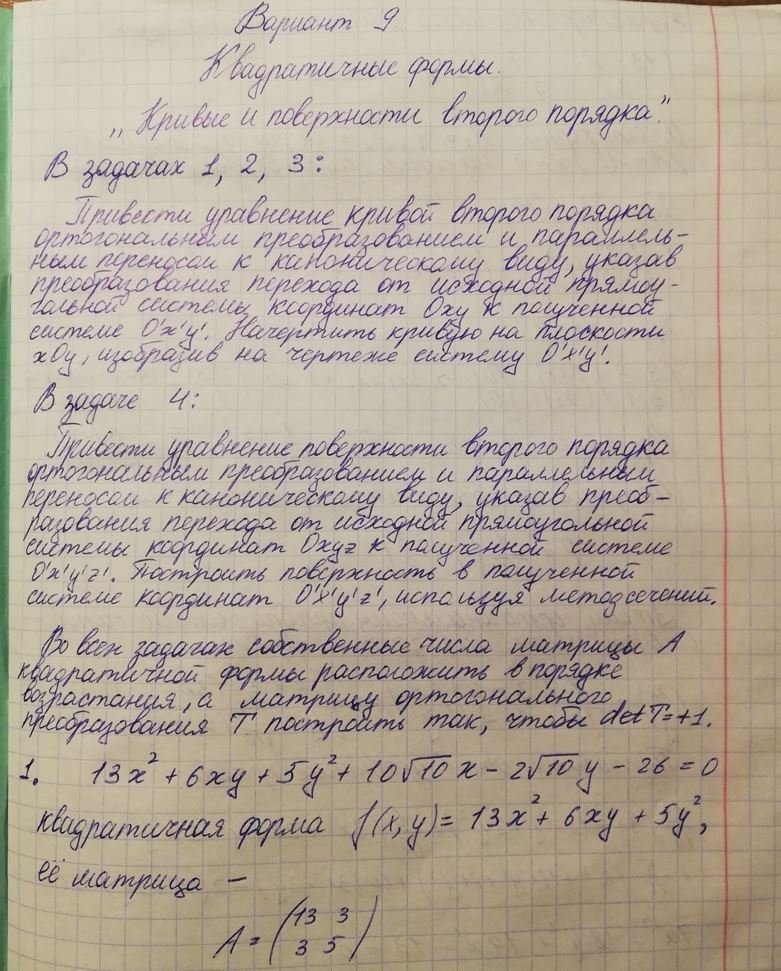 Вариант 9
Квадратичные формы.
„Кривые и поверхности второго порядка".
В задачах 1, 2, 3:
Привести уравнение кривой второго порядка
ортогональным преобразованием и параллель-
ным переносом к каноническому виду, указав
преобразования перехода от исходной прямоу-
гольной системы координат Oxy к полученной
системе O'x'y'. Начертить кривую на плоскости
xOy, изобразив на чертеже систему O'x'y'.
В задаче 4:
Привести уравнение поверхности второго порядка
ортогональным преобразованием и параллельным
переносом к каноническому виду, указав преоб-
разования перехода от исходной прямоугольной
системы координат Oxyz к полученной системе
O'x'y'z'. Построить поверхность в полученной
системе координат O'x'y'z', используя метод сечений.
Во всех задачах собственные числа матрицы A
квадратичной формы расположить в порядке
возрастания, а матрицу ортогонального
преобразования T построить так, чтобы det T=+1.
1. 13x² + 6xy + 5y² + 10√10 x - 2√10 y - 26 = 0
квадратичная форма f(x,y) = 13x² + 6xy + 5y²,
её матрица —
A = (13 3
3 5)